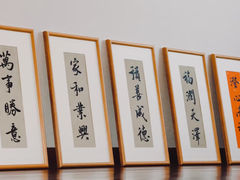 萬事勝意
家和業興
積善成德
福潤天澤